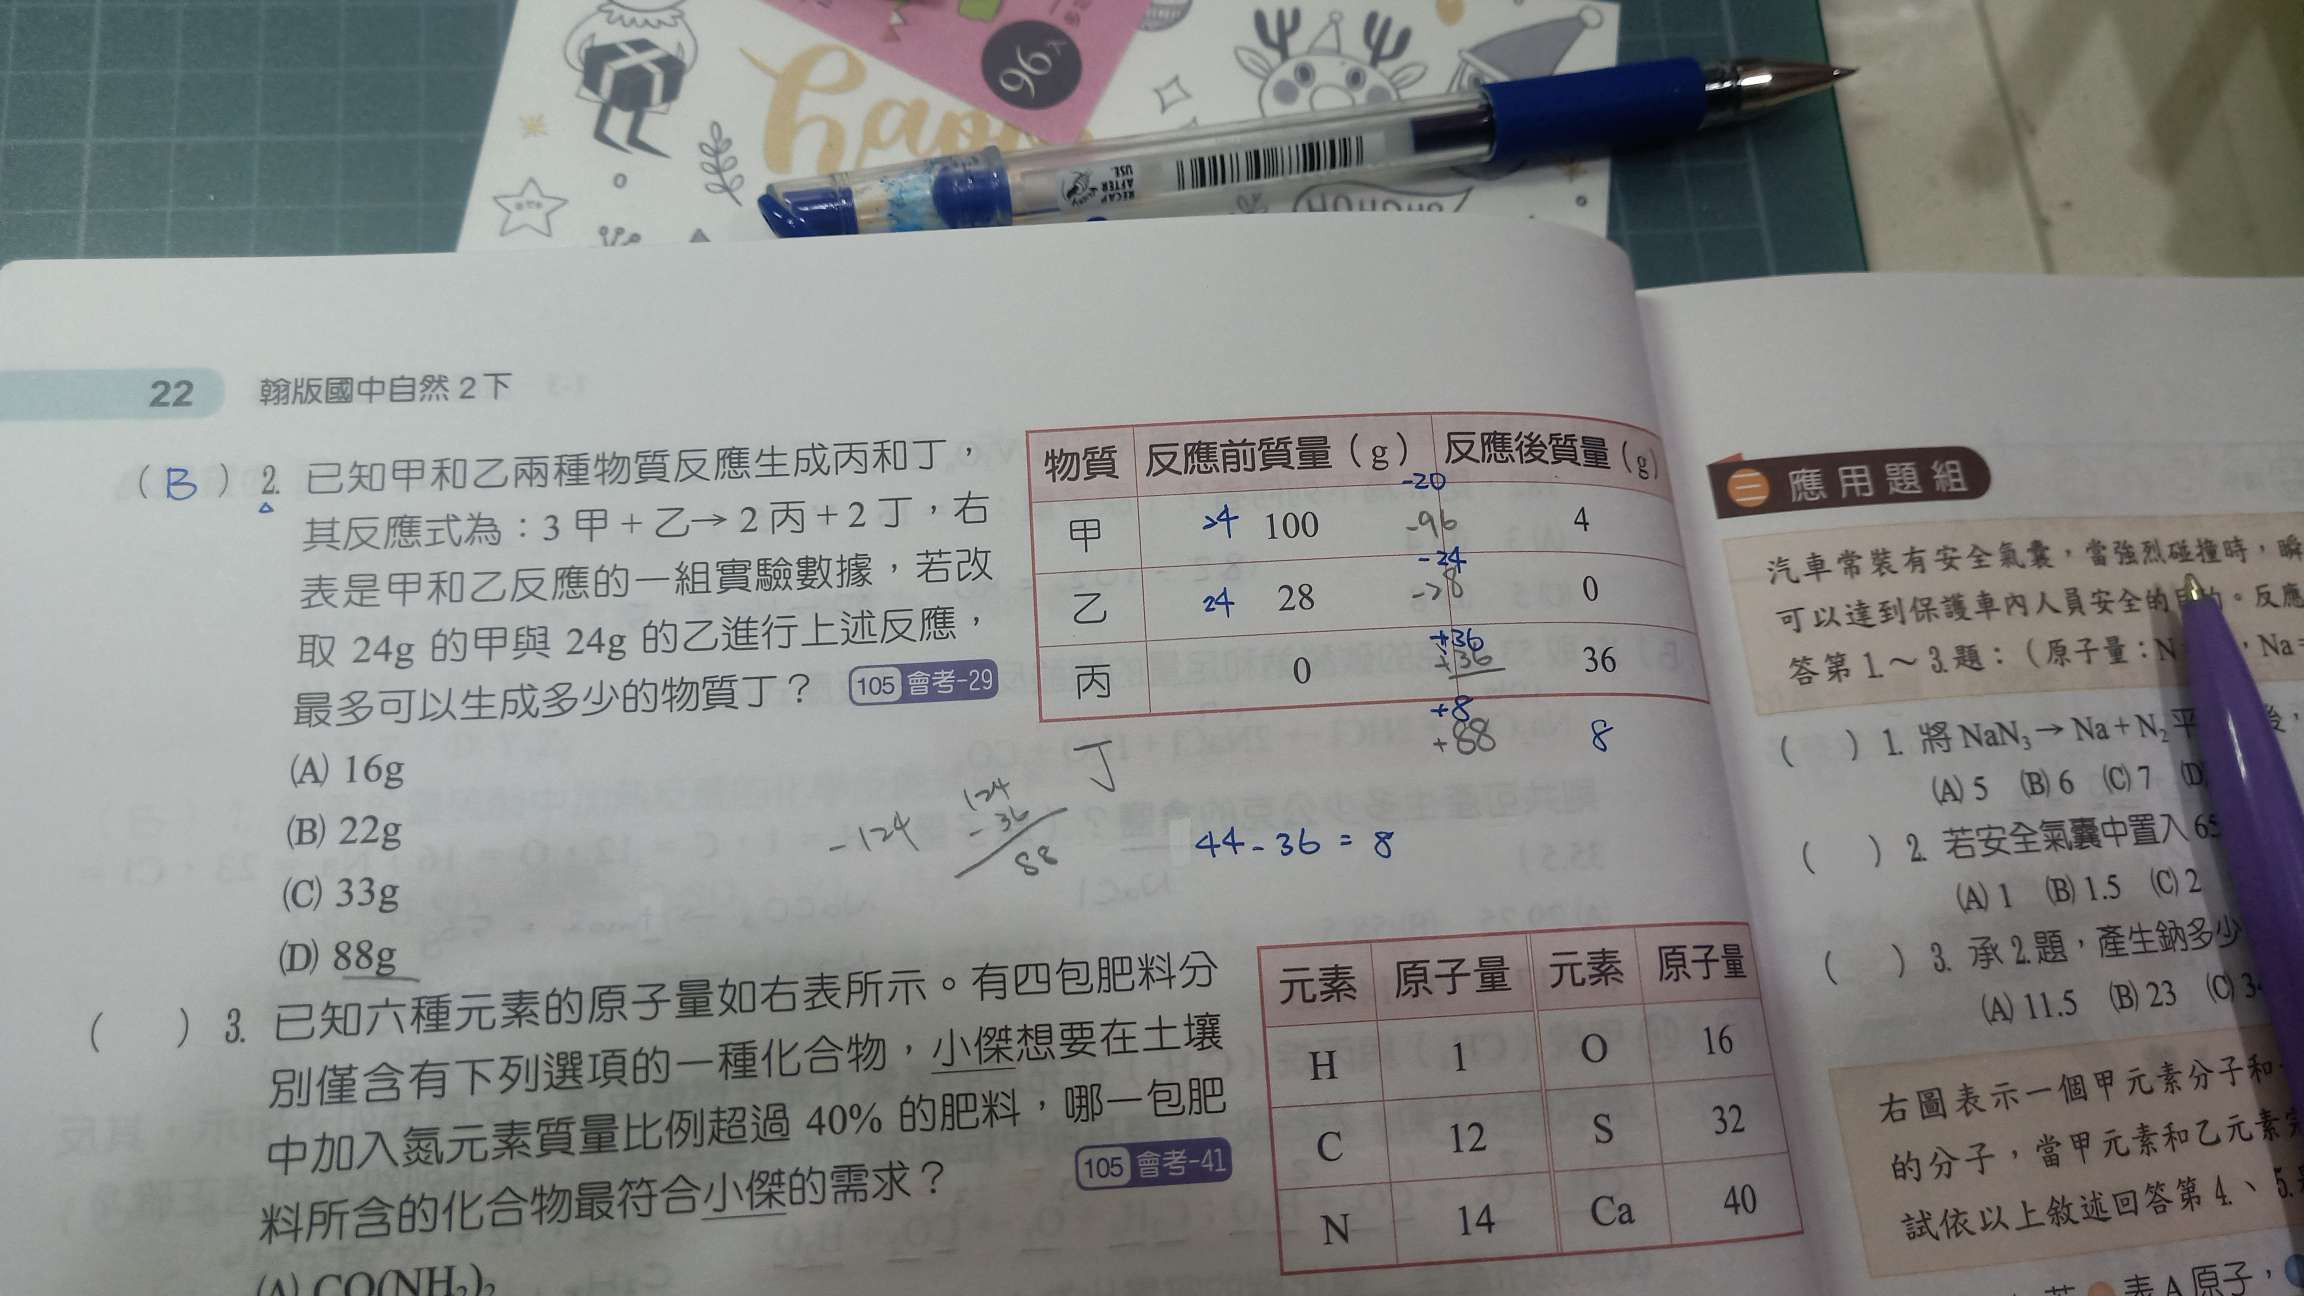 96
happy
RECAP
AFTER
USE
22 翰版國中自然2下
( B ) 2. 已知甲和乙兩種物質反應生成丙和丁，
其反應式為：3 甲 + 乙→ 2 丙 + 2 丁，右
表是甲和乙反應的一組實驗數據，若改
取 24g 的甲與 24g 的乙進行上述反應，
最多可以生成多少的物質丁？ 105 會考-29
(A) 16g
(B) 22g
(C) 33g
(D) 88g
物質 反應前質量（g） 反應後質量（g）
-20
甲 24 100 -96 4
-24
乙 24 28 -28 0
+36
丙 0 +36 36
+8
丁 +88 8
-124
124
- 36
88
44 - 36 = 8
( ) 3. 已知六種元素的原子量如右表所示。有四包肥料分
別僅含有下列選項的一種化合物，小傑想要在土壤
中加入氮元素質量比例超過 40% 的肥料，哪一包肥
料所含的化合物最符合小傑的需求？ 105 會考-41
(A) CO(NH₂)₂
元素 原子量 元素 原子量
H 1 O 16
C 12 S 32
N 14 Ca 40
三 應用題組
汽車常裝有安全氣囊，當強烈碰撞時，瞬
可以達到保護車內人員安全的目的。反應
答第 1.～3.題：（原子量：N ，Na=
( ) 1. 將 NaN₃→ Na + N₂ 平 後，
(A) 5 (B) 6 (C) 7 (D)
( ) 2. 若安全氣囊中置入 65
(A) 1 (B) 1.5 (C) 2
( ) 3. 承 2.題，產生鈉多少
(A) 11.5 (B) 23 (C) 3
右圖表示一個甲元素分子和
的分子，當甲元素和乙元素完
試依以上敘述回答第 4.、5.
表 A 原子，